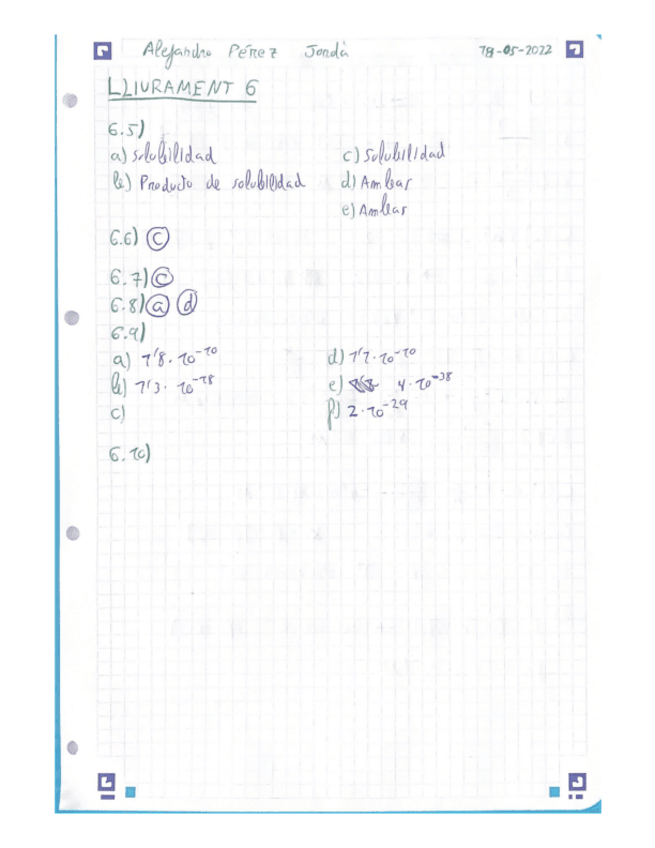 Alejandro Pérez Jordà 18-05-2022
LLIURAMENT 6
6.5)
a) Solubilidad c) Solubilidad
b) Producto de solubilidad d) Ambas
e) Ambas
6.6) c
6.7) c
6.8) a d
6.9)
a) 1'8·10⁻¹⁰ d) 1'7·10⁻¹⁰
b) 1'3·10⁻¹⁸ e) 4·10⁻³⁸
c) f) 2·10⁻²⁹
6.10)